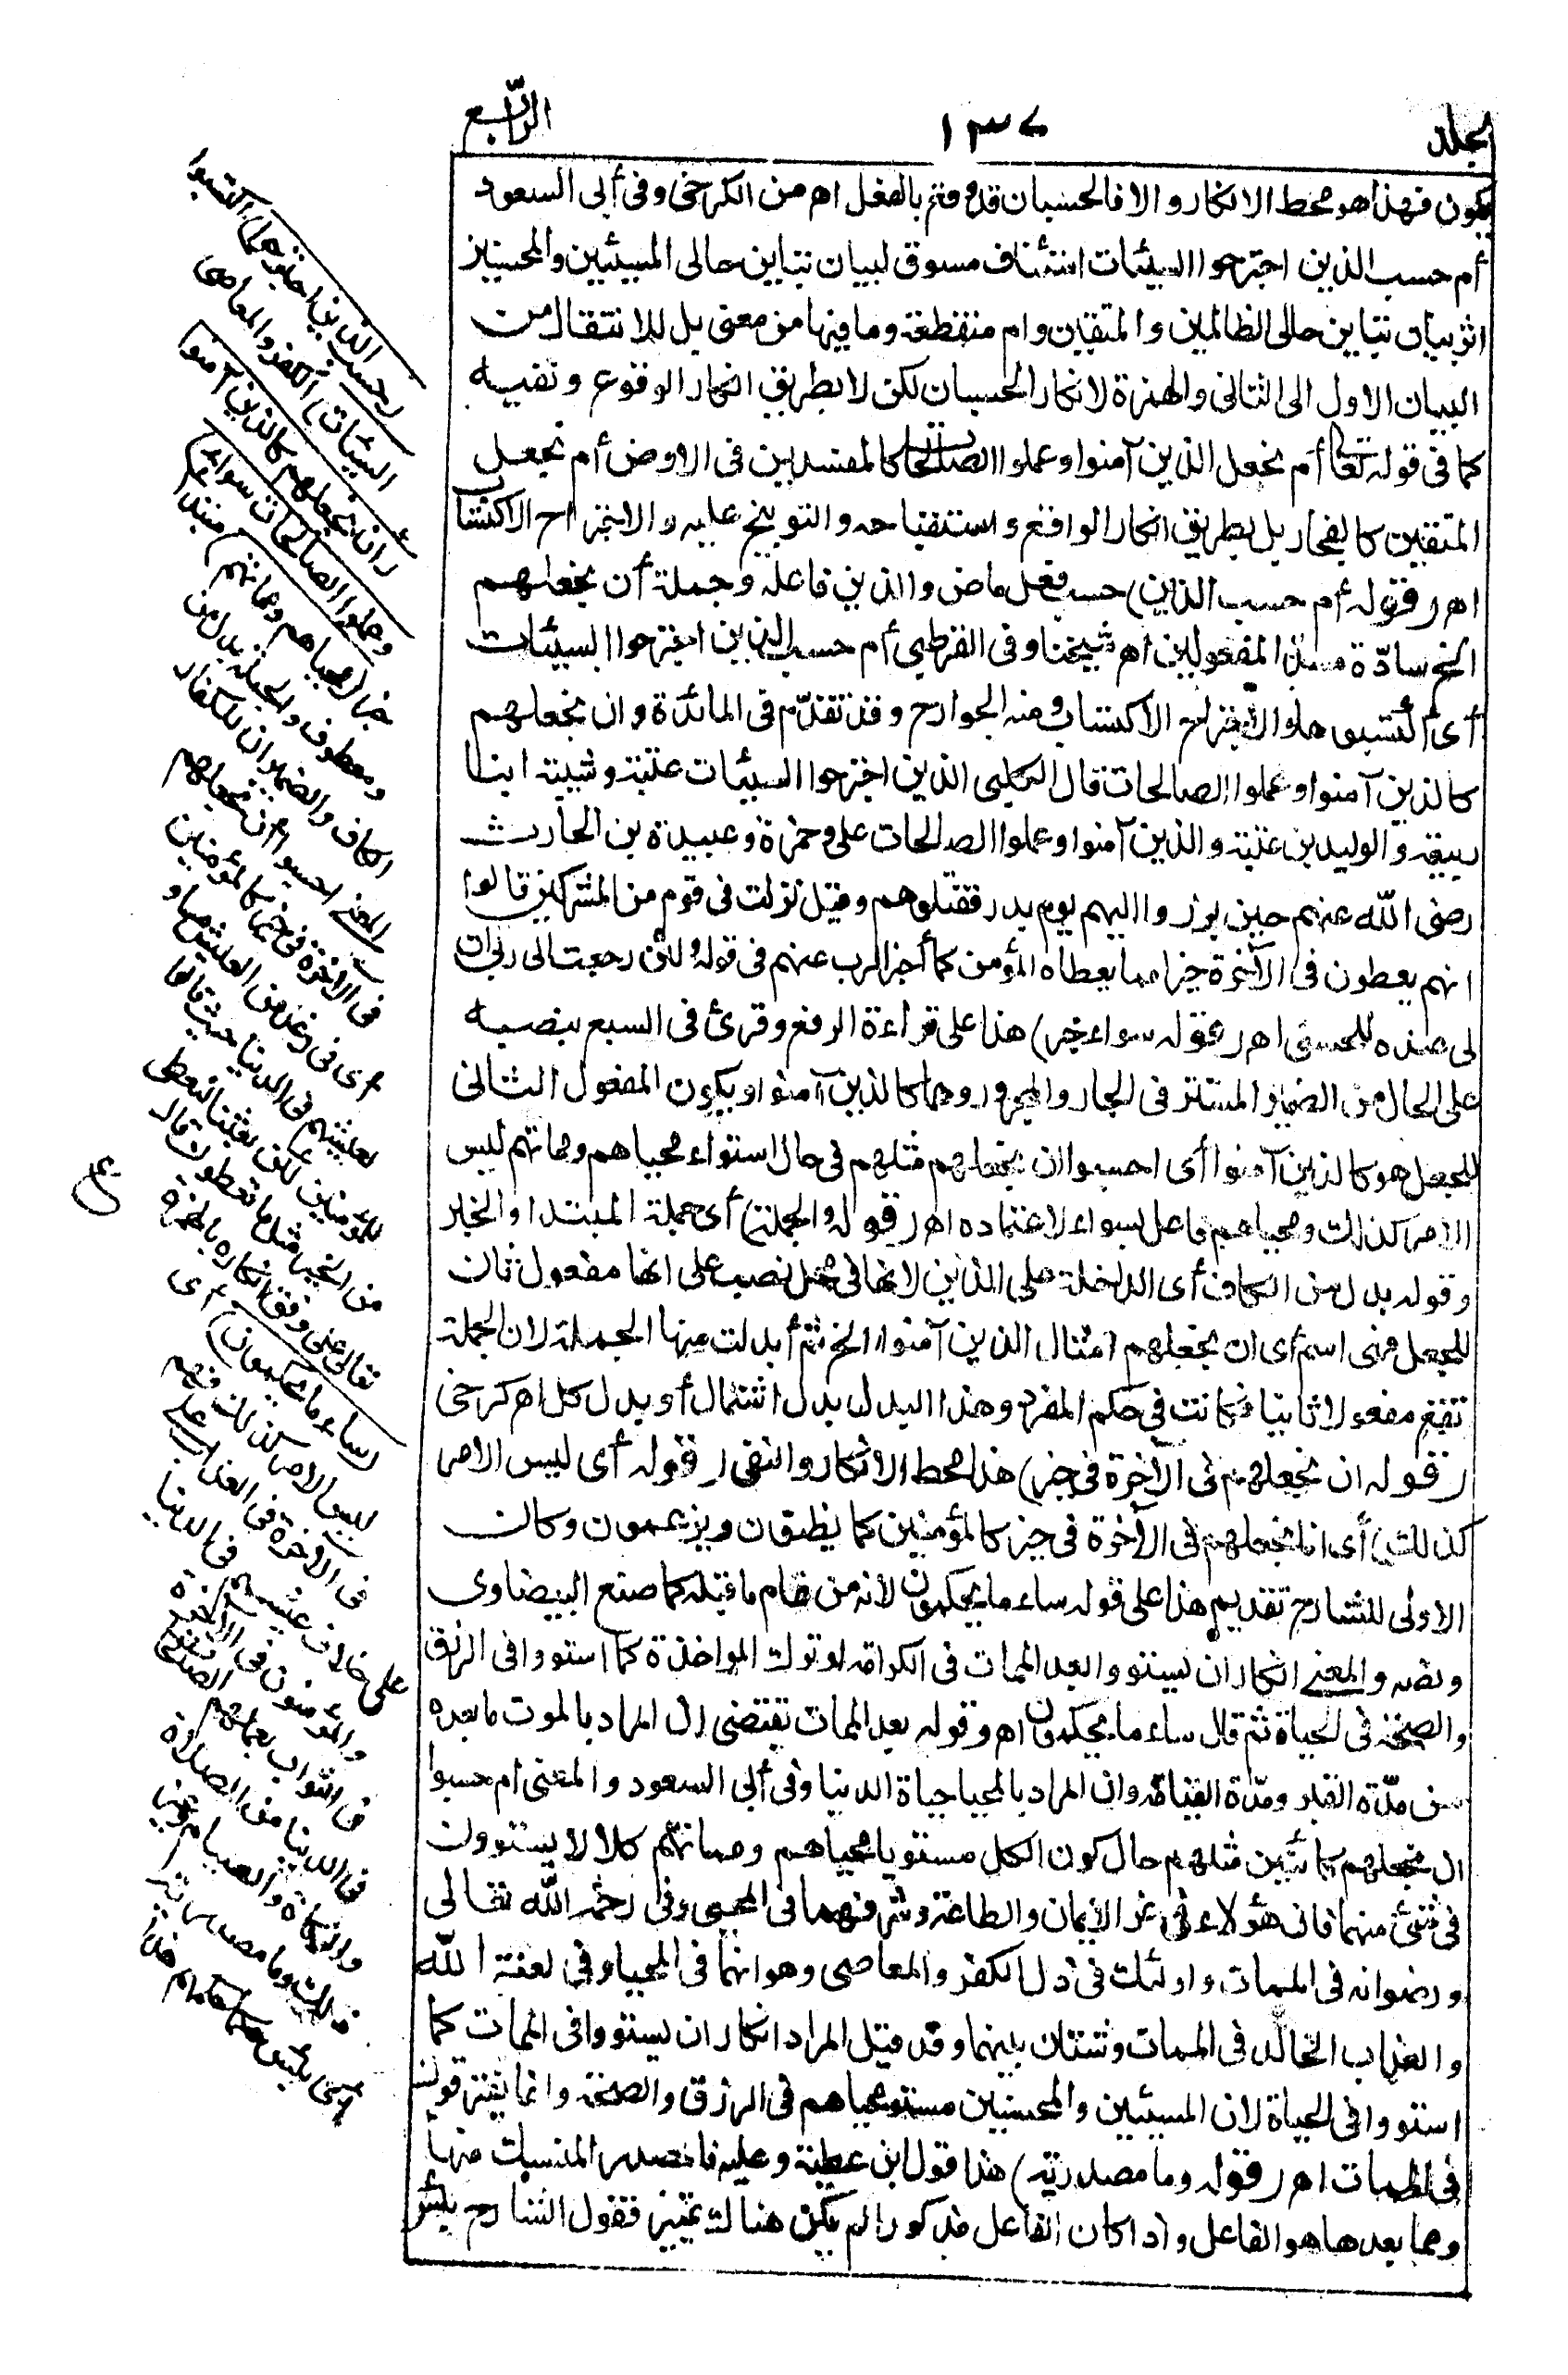 جلد ١٣٧ الرّابع
يكون فهذا هو محط الانكار والا فالحسبان قد وقع بالفعل اه من الكرخى وفى أبى السعود
أم حسب الذين اجترحوا السيئات استئناف مسوق لبيان تباين حالى المسيئين والمحسنين
اثر بيان تباين حالى الظالمين والمتقين وام منقطعة وما فيها من معنى بل للانتقال من
البيان الاول الى الثانى والهمزة لانكار الحسبان لكن لا بطريق انكار الوقوع ونفيه
كما فى قوله تعالى أم نجعل الذين آمنوا وعملوا الصالحات كالمفسدين فى الارض أم نجعل
المتقين كالفجار بل بطريق انكار الواقع واستقباحه والتوبيخ عليه والاجتراح الاكتساب
اه (قوله أم حسب الذين) حسب فعل ماض والذين فاعله وجملة أن نجعلهم
الخ سادّة مسدّ المفعولين اه شيخنا وفى القرطبى أم حسب الذين اجترحوا السيئات
أى اكتسبوها والاجتراح الاكتساب ومنه الجوارح وقد تقدّم فى المائدة وان نجعلهم
كالذين آمنوا وعملوا الصالحات قال الكلبى الذين اجترحوا السيئات عتبة وشيبة ابنا
ربيعة والوليد بن عتبة والذين آمنوا وعملوا الصالحات على وحمزة وعبيدة بن الحارث
رضى الله عنهم حين برزوا اليهم يوم بدر فقتلوهم وقيل نزلت فى قوم من المشركين قالوا
انهم يعطون فى الآخرة خيرا مما يعطاه المؤمن كما أخبر الرب عنهم فى قوله ولئن رجعت الى ربى ان
لى عنده للحسنى اه (قوله سواء خبر) هذا على قراءة الرفع وقرئ فى السبع بنصبه
على الحال من الضمير المستتر فى الجار والمجرور وهما كالذين آمنوا ويكون المفعول الثانى
للجعل هو كالذين آمنوا أى احسبوا ان نجعلهم مثلهم فى حال استواء محياهم ومماتهم ليس
الامر كذلك ومحياهم فاعل بسواء لاعتماده اه (قوله والجملة) أى جملة المبتدا والخبر
وقوله بدل من الكاف أى الداخلة على الذين لانها فى محل نصب على انها مفعول ثان
للجعل فهى اسم أى ان نجعلهم امثال الذين آمنوا الخ ثم أبدلت منها الجملة لان الجملة
تقع مفعولا ثانيا فكانت فى حكم المفرد وهذا البدل بدل اشتمال أو بدل كل اه كرخى
(قوله ان نجعلهم فى الآخرة فى خير) هذا محط الانكار والنفى (قوله أى ليس الامر
كذلك) أى انا نجعلهم فى الآخرة فى خير كالمؤمنين كما يظنون ويزعمون وكان
الاولى للشارح تقديم هذا على قوله ساء ما يحكمون لانه من تمام ما قبله كما صنع البيضاوى
ونصه والمعنى انكار ان يستووا بعد الممات فى الكرامة او ترك المواخذة كما استووا فى الرزق
والصحة فى الحياة ثم قال ساء ما يحكمون اه وقوله بعد الممات يقتضى ان المراد بالموت ما بعده
من مدّة القبر ومدّة القيامة وان المراد بالمحيا حياة الدنيا وفى أبى السعود والمعنى ام حسبوا
ان نجعلهم كائنين مثلهم حال كون الكل مستويا محياهم ومماتهم كلا لا يستوون
فى شئ منهما فان هؤلاء فى عز الايمان والطاعة وشرفهما فى المحيى وفى رحمة الله تعالى
ورضوانه فى الممات واولئك فى ذل الكفر والمعاصى وهوانهما فى المحيا وفى لعنة الله
والعذاب الخالد فى الممات وشتان بينهما وقد قيل المراد انكار ان يستووا فى الممات كما
استووا فى الحياة لان المسيئين والمحسنين مستو محياهم فى الرزق والصحة وانما يفترقون
فى الممات اه (قوله وما مصدرية) هذا قول ابن عطية وعليه فالمصدر المنسبك منها
ومما بعدها هو الفاعل واذا كان الفاعل مذكورا لم يكن هناك تمييز فقول الشارح بئس
حسب الذين اجترحوا) اكتسبوا
السيئات) الكفر والمعاصى
(ان نجعلهم كالذين آمنوا
وعملوا الصالحات سواء)
خبر (محياهم ومماتهم) مبتدأ
ومعطوف والجملة بدل من
الكاف والضميران للكفار
المعنى احسبوا أن نجعلهم
فى الآخرة فى خير كالمؤمنين
أى فى رغد من العيش مساو
لعيشهم فى الدنيا حيث قالوا
للمؤمنين لئن بعثنا لنعطى
من الخير مثل ما تعطون قال
تعالى على وفق انكاره بالهمزة
(ساء ما يحكمون) أى
ليس الامر كذلك فهم
فى الآخرة فى العذاب على
خلاف عيشهم فى الدنيا
والمؤمنون فى الآخرة
فى الثواب بعملهم الصالحات
فى الدنيا من الصلاة
والزكاة والصيام وغير
ذلك وما مصدرية
أى بئس حكما حكمهم هذا
ع